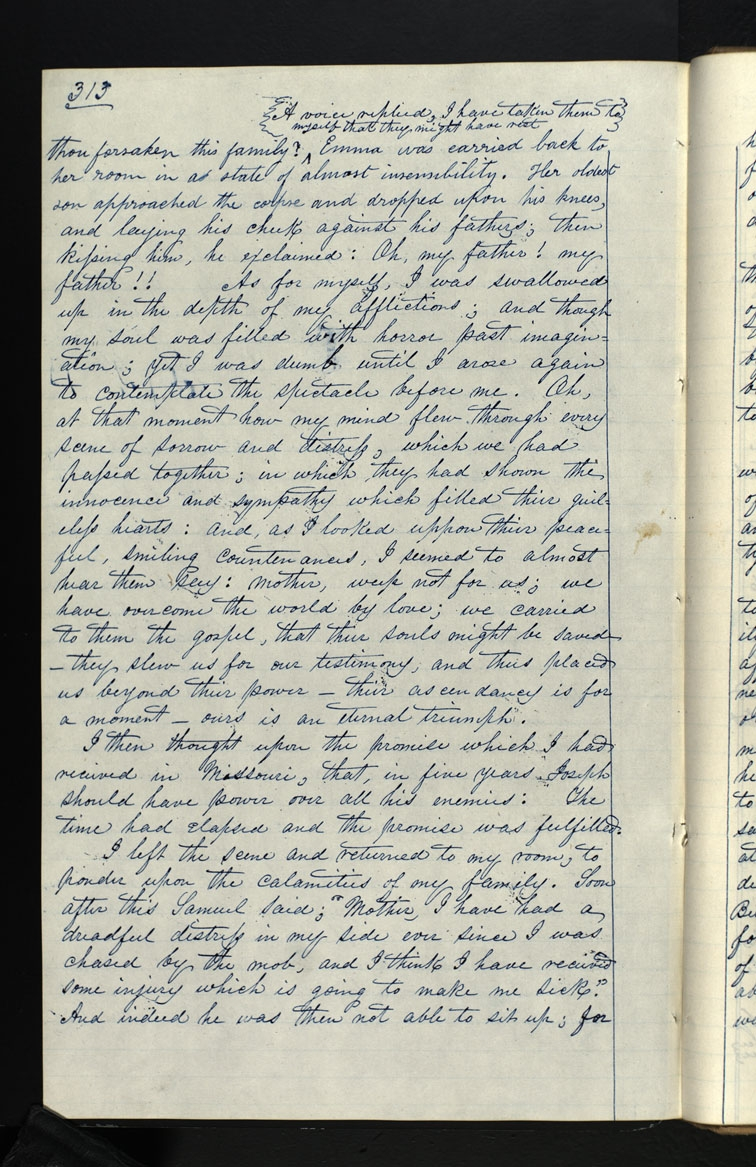 313
A voice replied, I have taken them to
myself that they might have rest
thou forsaken this family? ^ Emma was carried back to
her room in a state of almost insensibility. Her oldest
son approached the corpse and dropped upon his knees,
and laying his cheek against his fathers; then
kissing him, he exclaimed: Oh, my father! my
father!! As for myself, I was swallowed
up in the depth of my afflictions; and though
my soul was filled with horror past imagin=
ation; yet I was dumb until I arose again
to contemplate the spectacle before me. Oh,
at that moment how my mind flew through every
scene of sorrow and distress, which we had
passed together; in which they had shown the
innocence and sympathy which filled thier guil=
eless hearts: and, as I looked uppon thier peace=
ful, smiling countenances, I seemed to almost
hear them say: mother, weep not for us; we
have overcome the world by love; we carried
to them the gospel, that thier souls might be saved
— they slew us for our testimony, and thus placed
us beyond thier power — thier ascendancy is for
a moment — ours is an eternal triumph.
I then thought upon the promise which I had
received in Missouri, that, in five years Joseph
should have power over all his enemies: The
time had elapsed and the promise was fulfilled.
I left the scene and returned to my room, to
ponder upon the calamities of my family. Soon
after this Samuel said; "Mother, I have had a
dreadful distress in my side ever since I was
chased by the mob, and I think I have received
some injury which is going to make me sick."
And indeed he was then not able to sit up; for